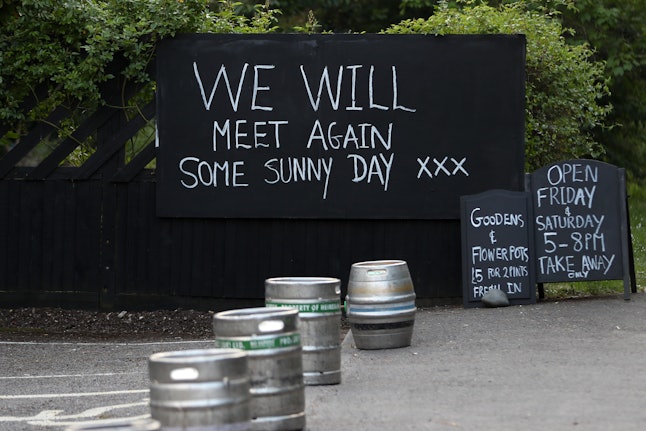 WE WILL
MEET AGAIN
SOME SUNNY DAY xxx
GOODENS
&
FLOWERPOTS
£5 FOR 2 PINTS
FRESH IN
OPEN
FRIDAY
&
SATURDAY
5-8PM
TAKE AWAY
ONLY
PROPERTY OF HEINEKEN